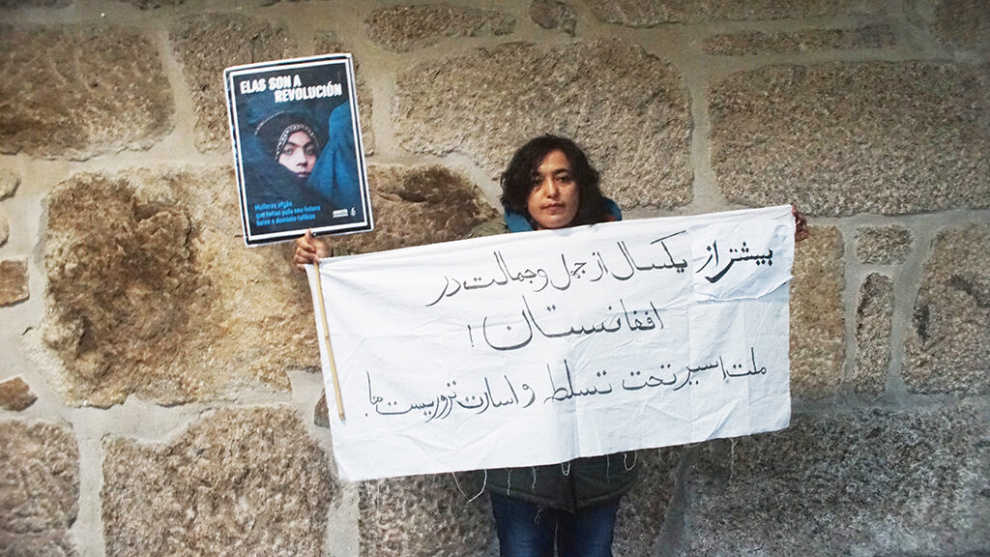 ELAS SON A
REVOLUCIÓN
Mulleres afgás
que loitan polo seu futuro
baixo o dominio talibán
بیشتر از یکسال از جهل و جمالت در
افغانستان!
ملت اسیر تحت تسلط و اسارت تروریست ها!